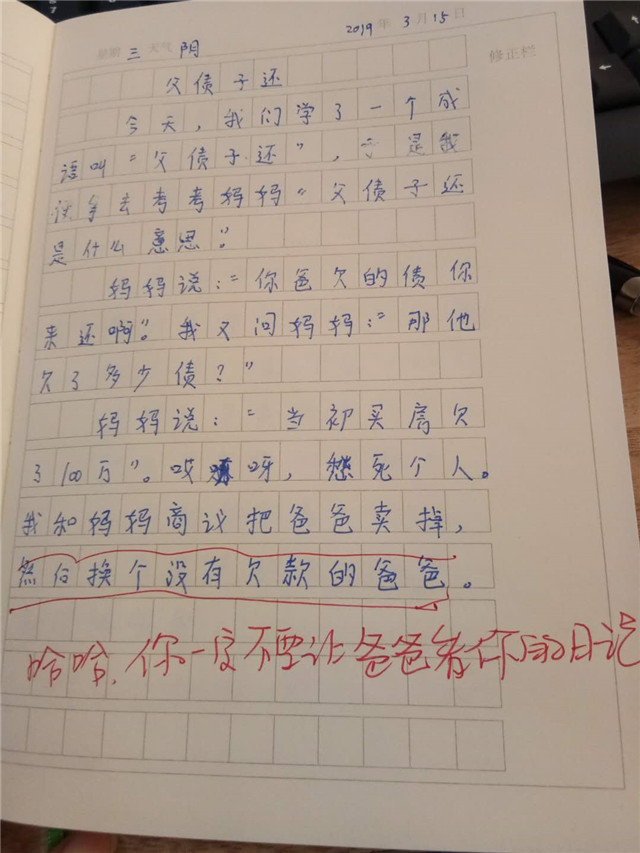 2019年3月15日
星期 三 天气 阴
修正栏
父债子还
今天，我们学了一个成
语叫“父债子还”，于是我
决定去考考妈妈“父债子还
是什么意思”。
妈妈说：“你爸欠的债你
来还啊”。我又问妈妈：“那他
欠了多少债？”
妈妈说：“当初买房欠
了100万”。哎呀，愁死个人。
我和妈妈商议把爸爸卖掉，
然后换个没有欠款的爸爸。
哈哈，你一定不要让爸爸看你的日记